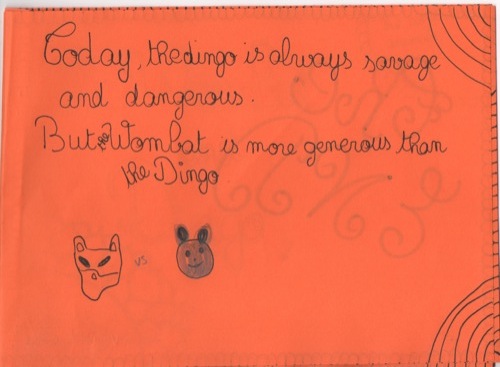 Today, the dingo is always savage
and dangerous.
But the Wombat is more generous than
the Dingo
vs